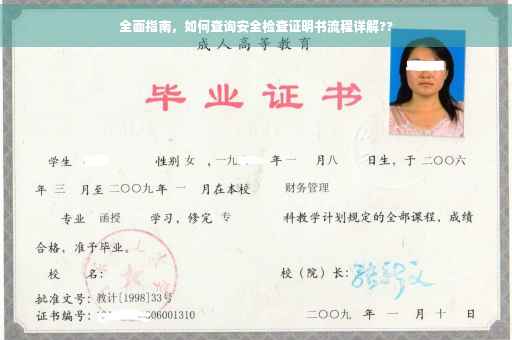 全面指南，如何查询安全检查证明书流程详解??
成人高等教育
毕业证书
学生 性别 女 ，一九 年 一 月八 日生，于 二〇〇六
年 三 月至 二〇〇九 年 一 月在本校 财务管理
专业 函授 学习，修完 专 科教学计划规定的全部课程，成绩
合格，准予毕业。
校 名： 校（院）长：
批准文号：教计[1998]33号
证书编号： 06001310 二〇〇九 年 一 月 十 日